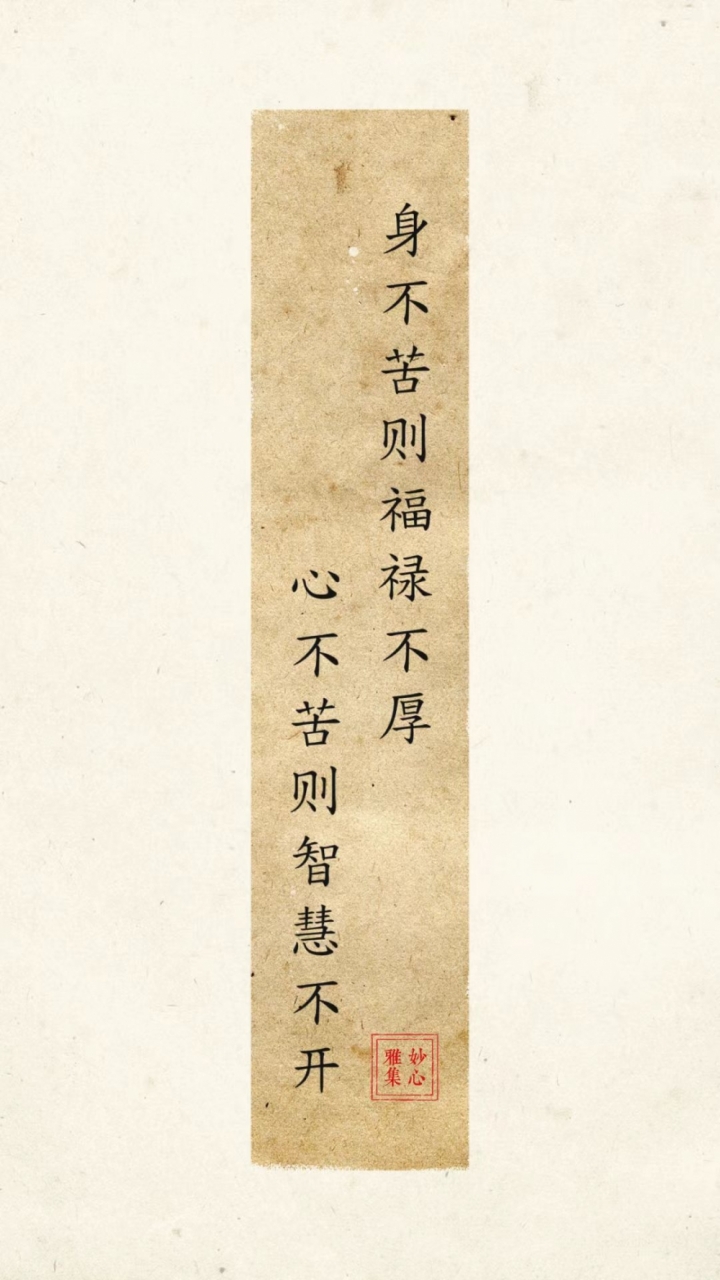 身不苦则福禄不厚
心不苦则智慧不开
妙心
雅集